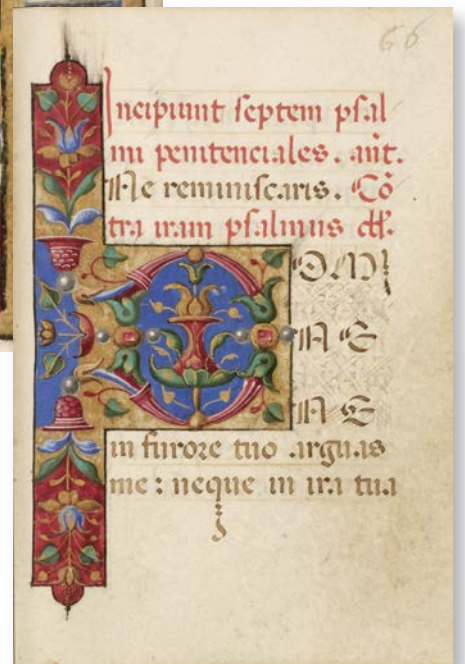 66
Incipiunt ſeptem pſal
mi penitenciales. añt.
Ne reminiſcaris. Cõ
tra iram pſalmus
DOMI
NE
NE
in furore tuo arguas
me: neque in ira tua